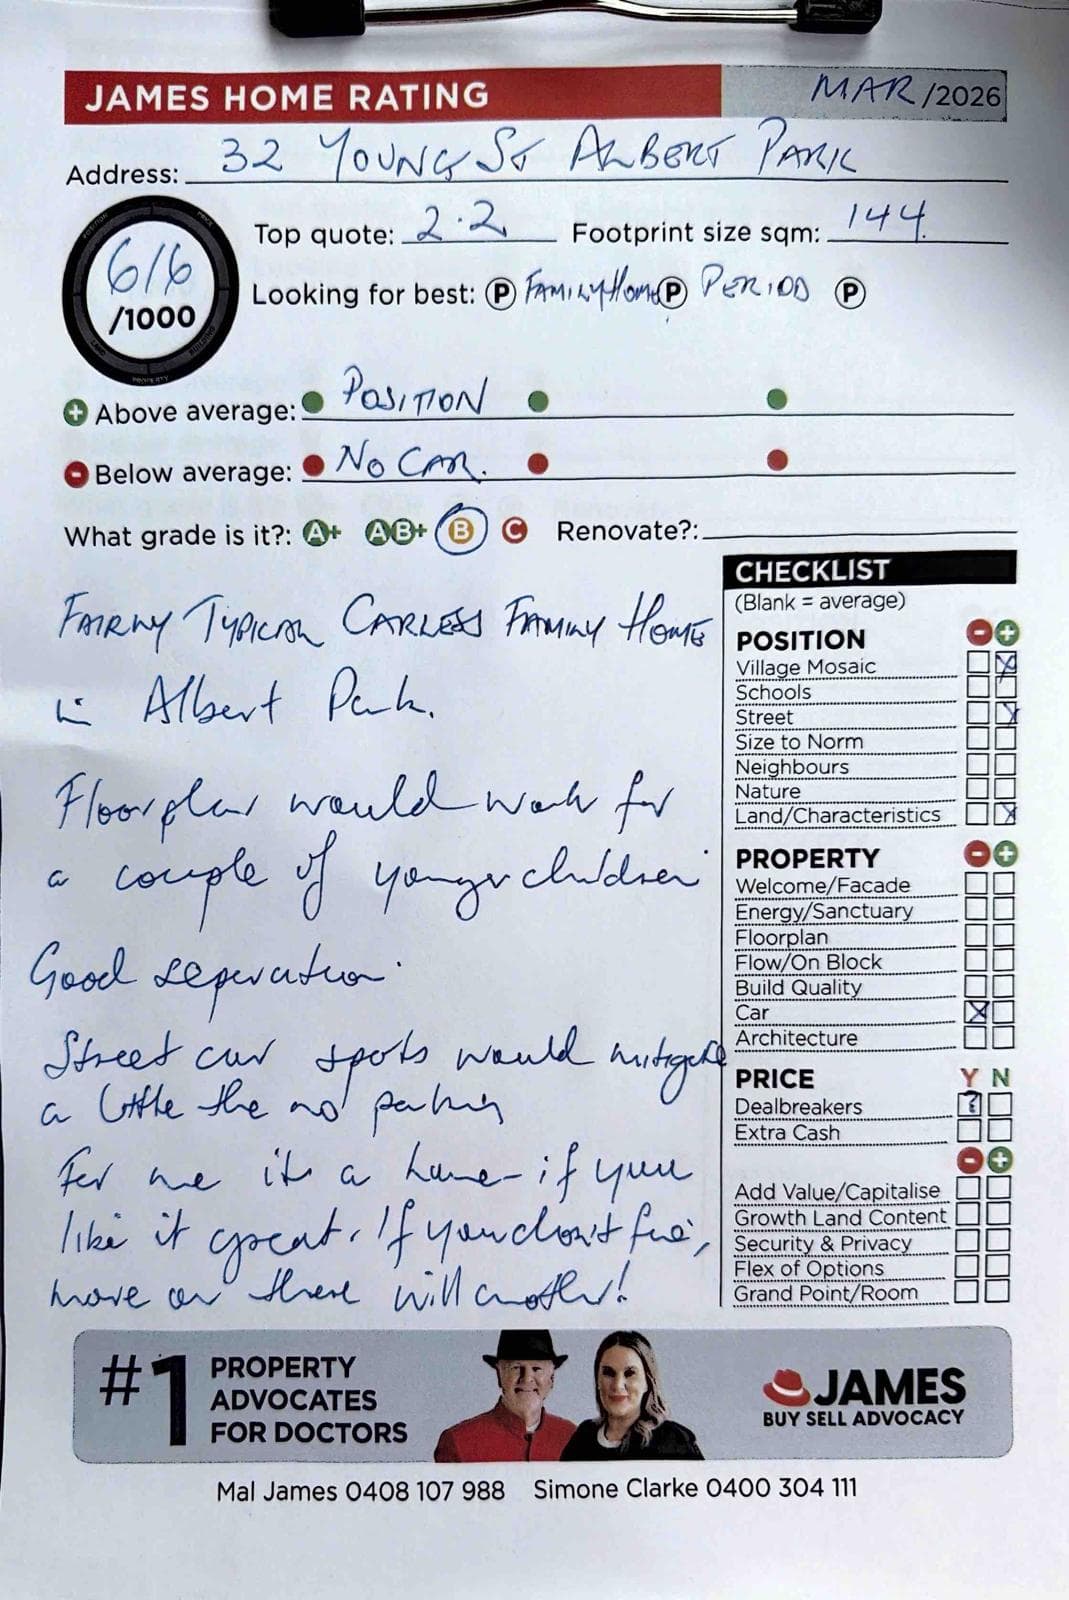 JAMES HOME RATING MAR /2026
Address: 32 YOUNG ST ALBERT PARK
616 /1000
Top quote: 2.2 Footprint size sqm: 144
Looking for best: P FAMILY HOME P PERIOD P
+ Above average: POSITION
- Below average: NO CAR.
What grade is it?: A+ AB+ B C Renovate?:
FAIRLY TYPICAL CARLESS FAMILY HOME
in Albert Park.
Floorplan would work for
a couple of younger children
Good seperation.
Street car spots would mitigate
a little the no parking
For me its a home - if you
like it great. If you don't fine,
move on there will another!
CHECKLIST
(Blank = average)
POSITION - +
Village Mosaic X
Schools
Street X
Size to Norm
Neighbours
Nature
Land/Characteristics X
PROPERTY - +
Welcome/Facade
Energy/Sanctuary
Floorplan
Flow/On Block
Build Quality
Car X
Architecture
PRICE Y N
Dealbreakers ?
Extra Cash
- +
Add Value/Capitalise
Growth Land Content
Security & Privacy
Flex of Options
Grand Point/Room
#1 PROPERTY
ADVOCATES
FOR DOCTORS
JAMES
BUY SELL ADVOCACY
Mal James 0408 107 988 Simone Clarke 0400 304 111